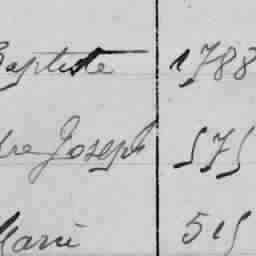 Baptiste 1788
dre Joseph 575
Marie 515